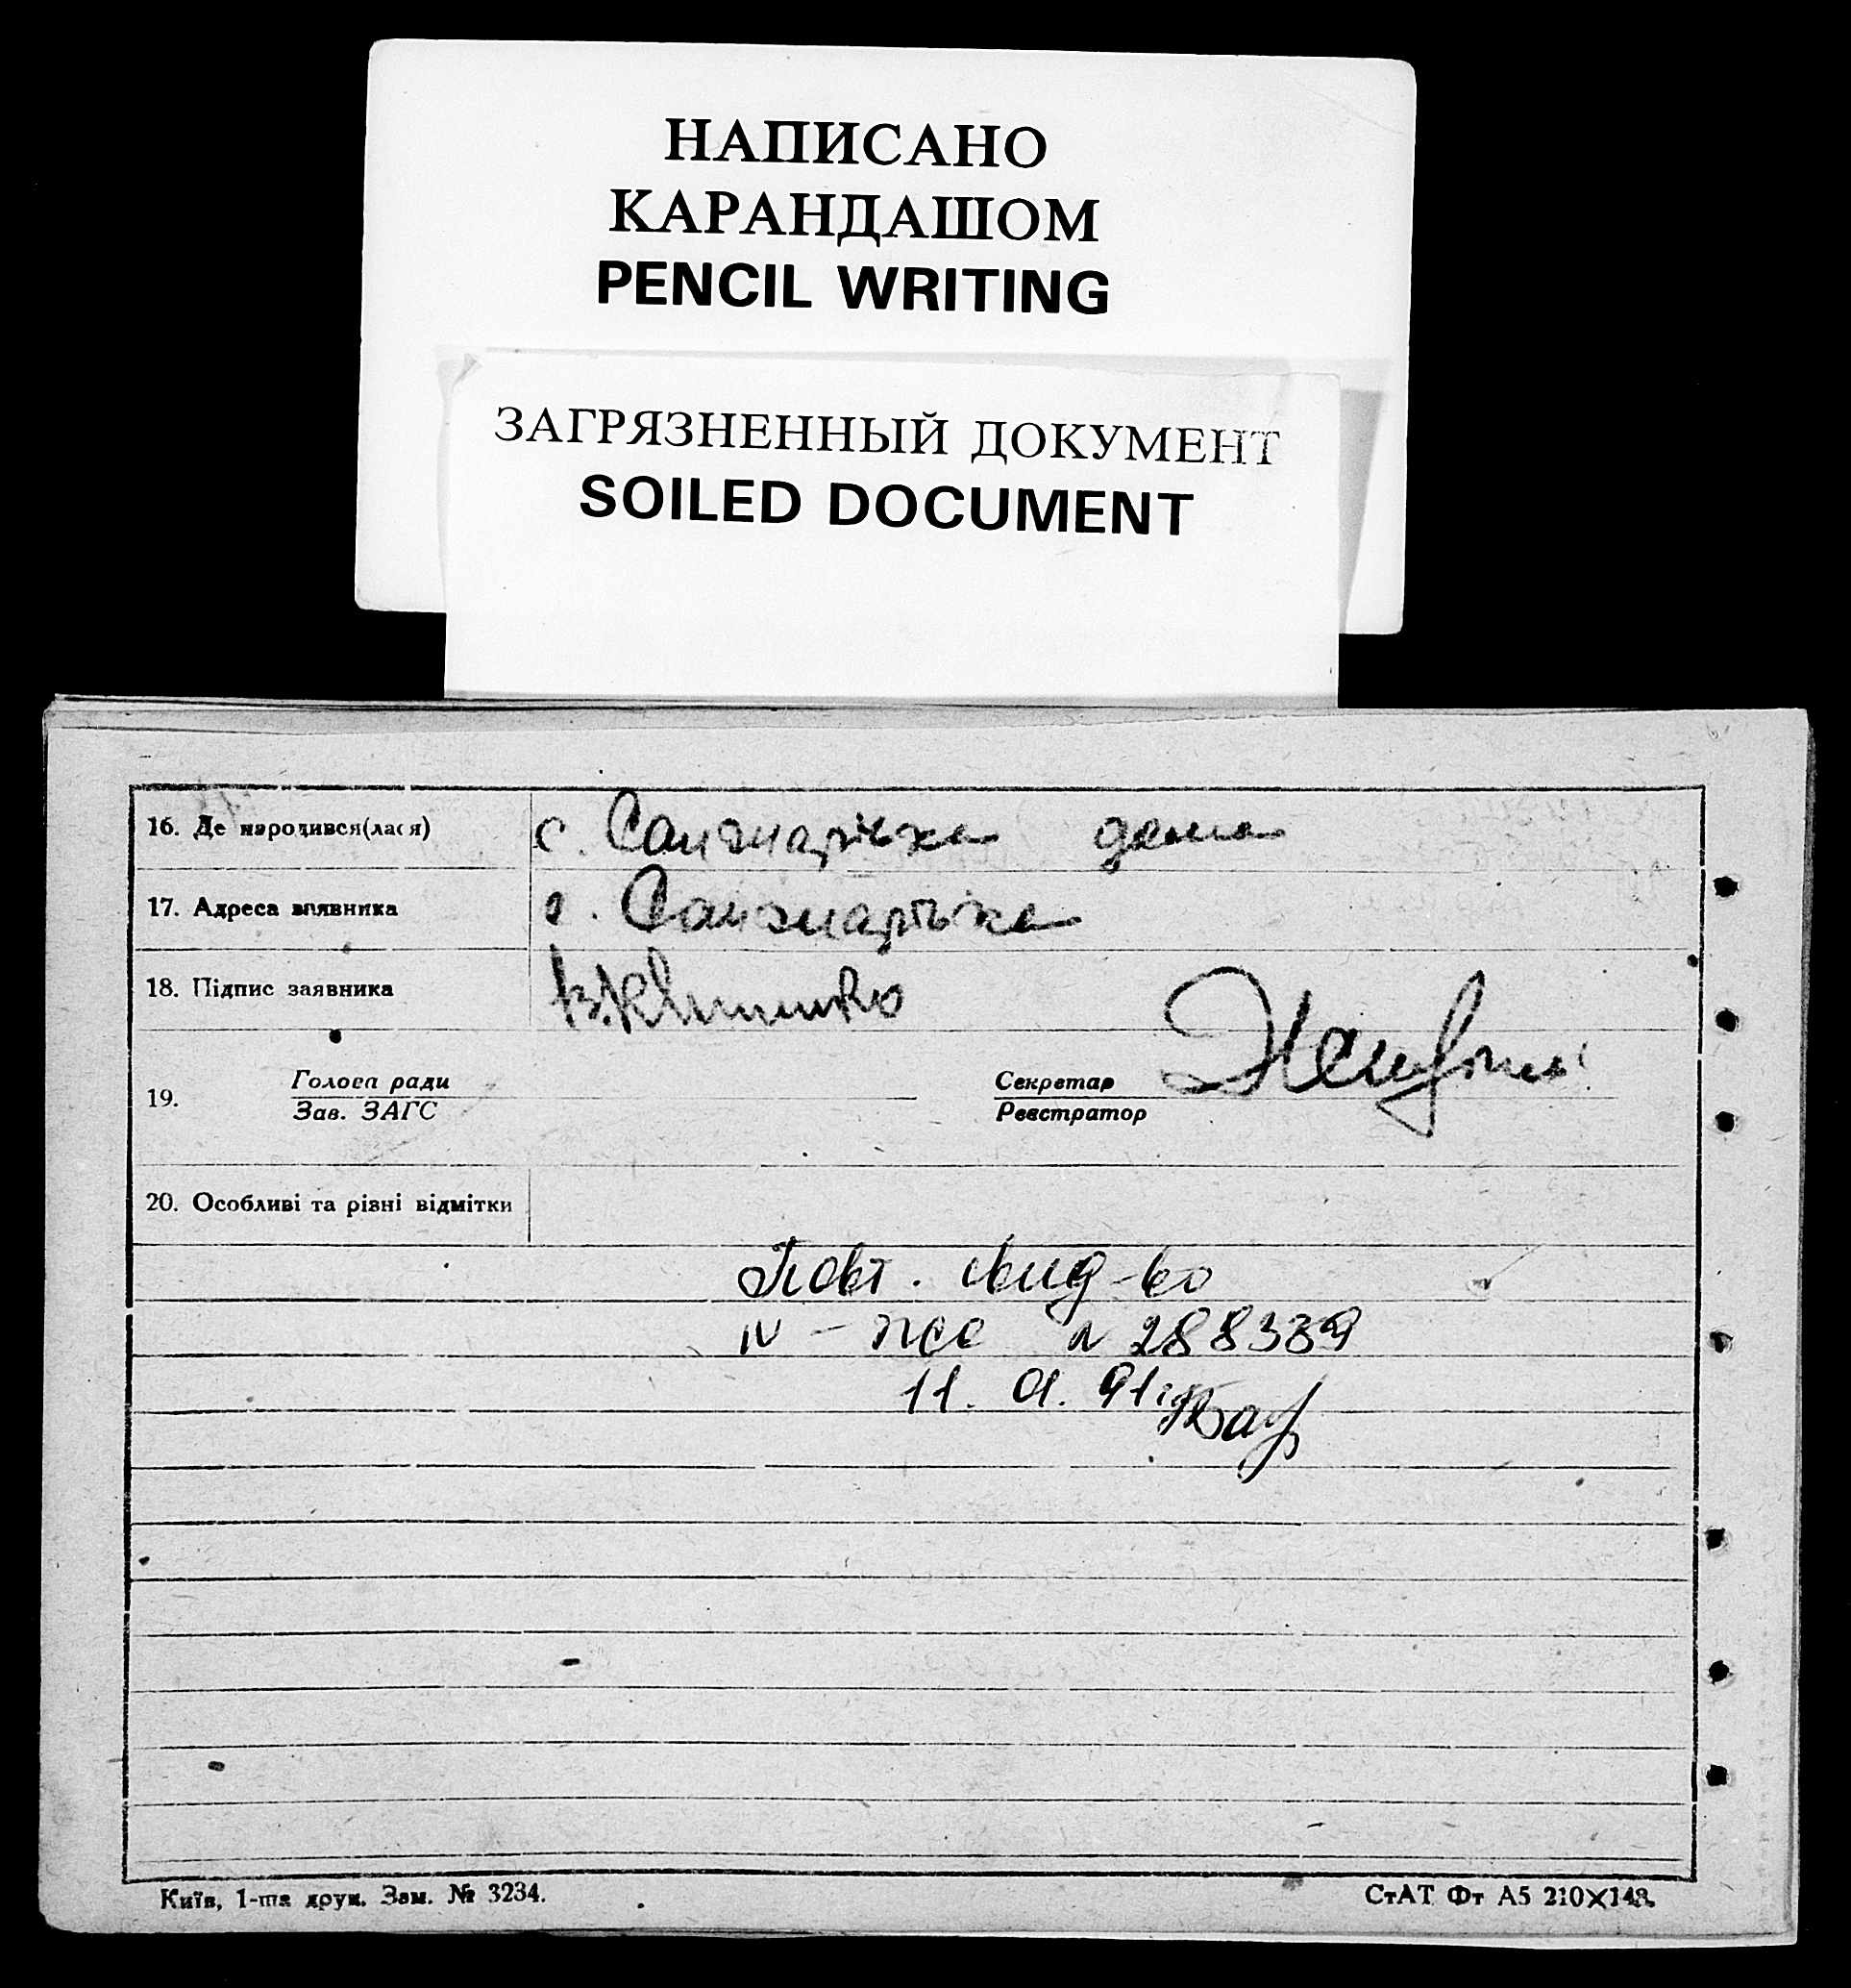 НАПИСАНО
КАРАНДАШОМ
PENCIL WRITING
ЗАГРЯЗНЕННЫЙ ДОКУМЕНТ
SOILED DOCUMENT
16. Де народився(лася) с. Санжарівка дома
17. Адреса заявника с. Санжарівка
18. Підпис заявника
19. Голова ради Секретар
Зав. ЗАГС Реєстратор
20. Особливі та різні відмітки
Повт. свид-во
IV – ЖС № 288339
11. 01. 91г.
Київ, 1-ша друк. Зам. № 3234.
СтАТ Фт А5 210×148.